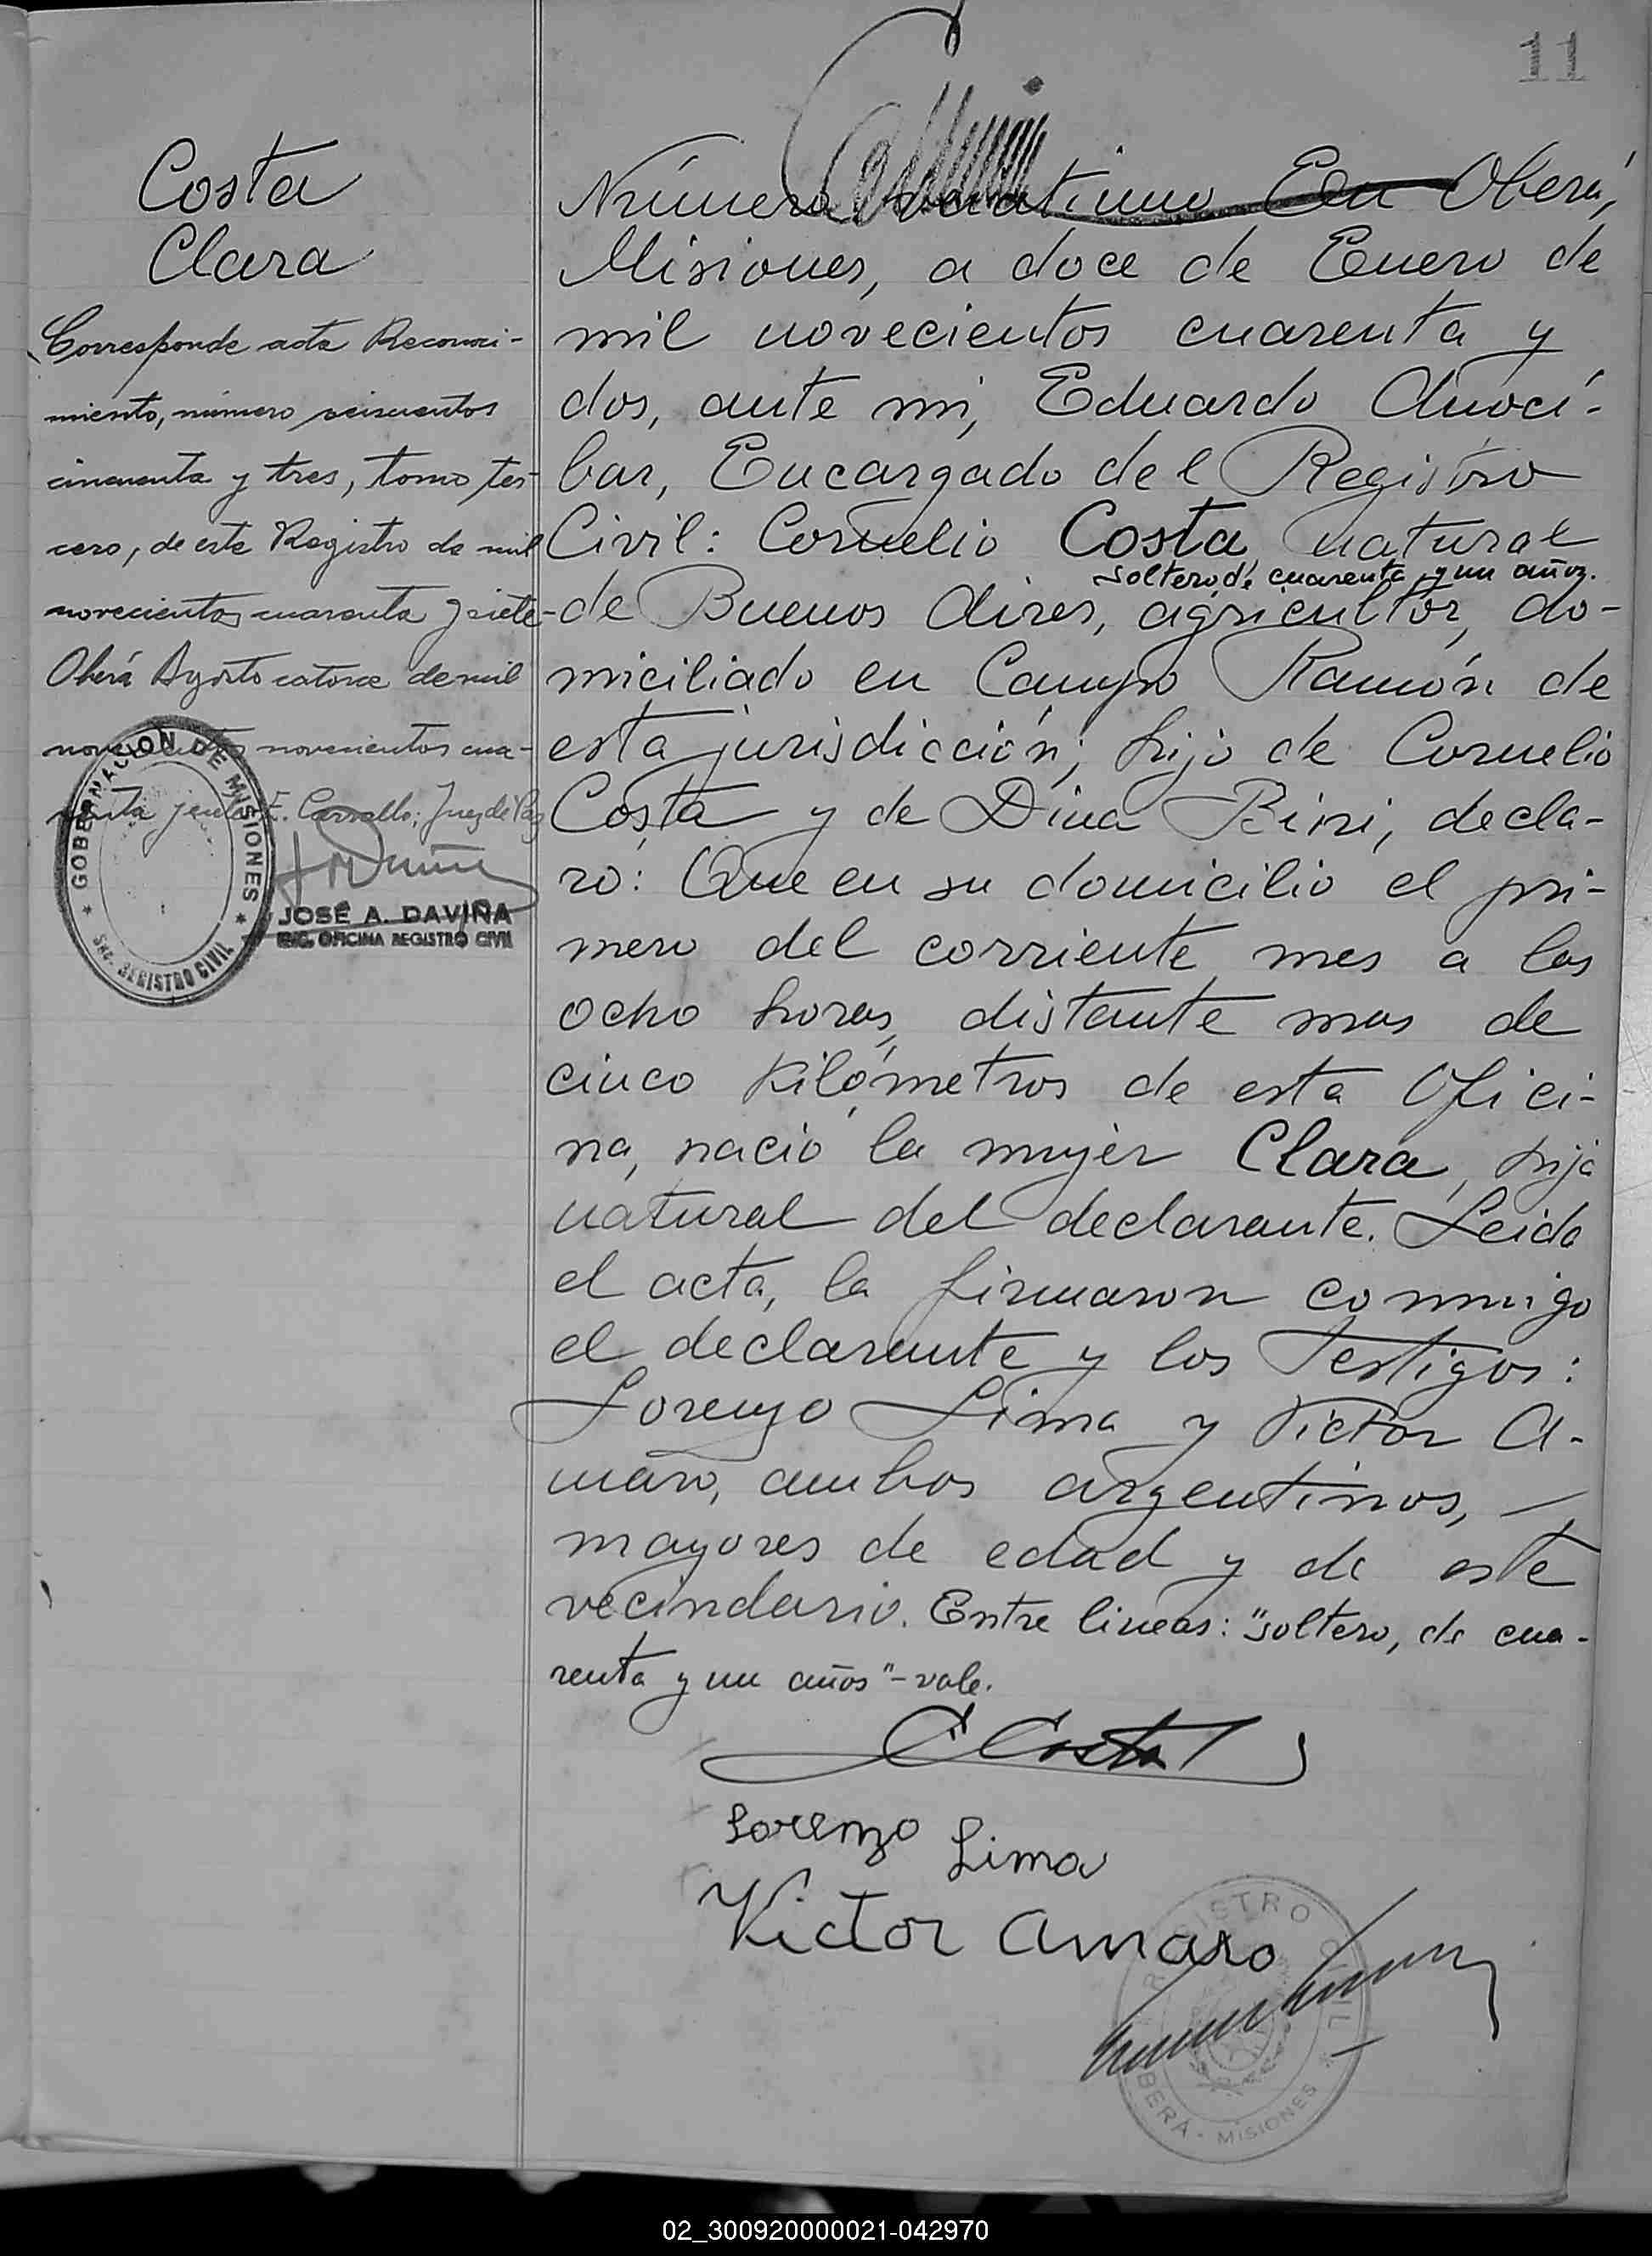 11
Costa
Clara
Corresponde acta Reconoci-
miento, número seiscientos
cincuenta y tres, tomo ter-
cero, de este Registro de mil
novecientos cuarenta y siete-
Oberá Agosto catorce de mil
novecientos novecientos cua-
renta y E. Carvallo; Juez de Paz
GOBERNACION DE MISIONES
SEC. REGISTRO CIVIL
JOSÉ A. DAVIÑA
ENC. OFICINA REGISTRO CIVIL
Número En Oberá,
Misiones, a doce de Enero de
mil novecientos cuarenta y
dos, ante mi, Eduardo Anocí-
bar, Encargado del Registro
Civil: Cornelio Costa, natural
soltero, de cuarenta y un años.
de Buenos Aires, agricultor, do-
miciliado en Campo Ramón de
esta jurisdicción; hijo de Cornelio
Costa y de Dina Bini, decla-
ró: Que en su domicilio el pri-
mero del corriente mes a las
ocho horas, distante mas de
cinco kilómetros de esta Ofici-
na, nació la mujer Clara, hija
natural del declarante. Leida
el acta, la firmaron conmigo
el declarante y los testigos:
Lorenzo Lima y Victor A-
maro, ambos argentinos, —
mayores de edad y de este
vecindario. Entre lineas: "soltero, de cua-
renta y un años"-vale.
C Costa
Lorenzo Lima
Victor Amaro
REGISTRO CIVIL
OBERÁ - MISIONES
02_300920000021-042970